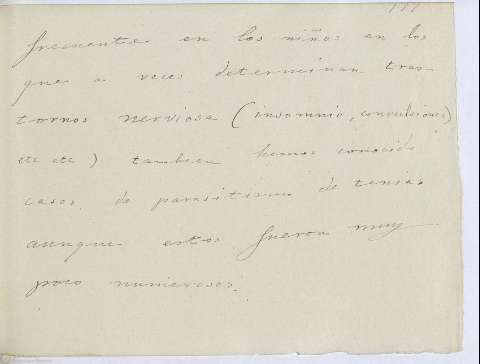 frecuente en los niños en los
que a veces determinan tras-
tornos nerviosa (insomnio, convulsiones)
etc etc) tambien hemos conocido
casos de parasitismo de tenias
aunque estos fueron muy
poco numerosos.